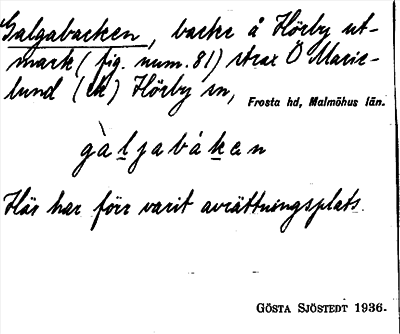 Galgabacken, backe å Hörby ut-
mark (fig. num. 81) strax Ö Marie-
lund (ek) Hörby sn,
Frosta hd, Malmöhus län.
gàlgabáken
Här har förr varit avrättningsplats.
GÖSTA SJÖSTEDT 1936.